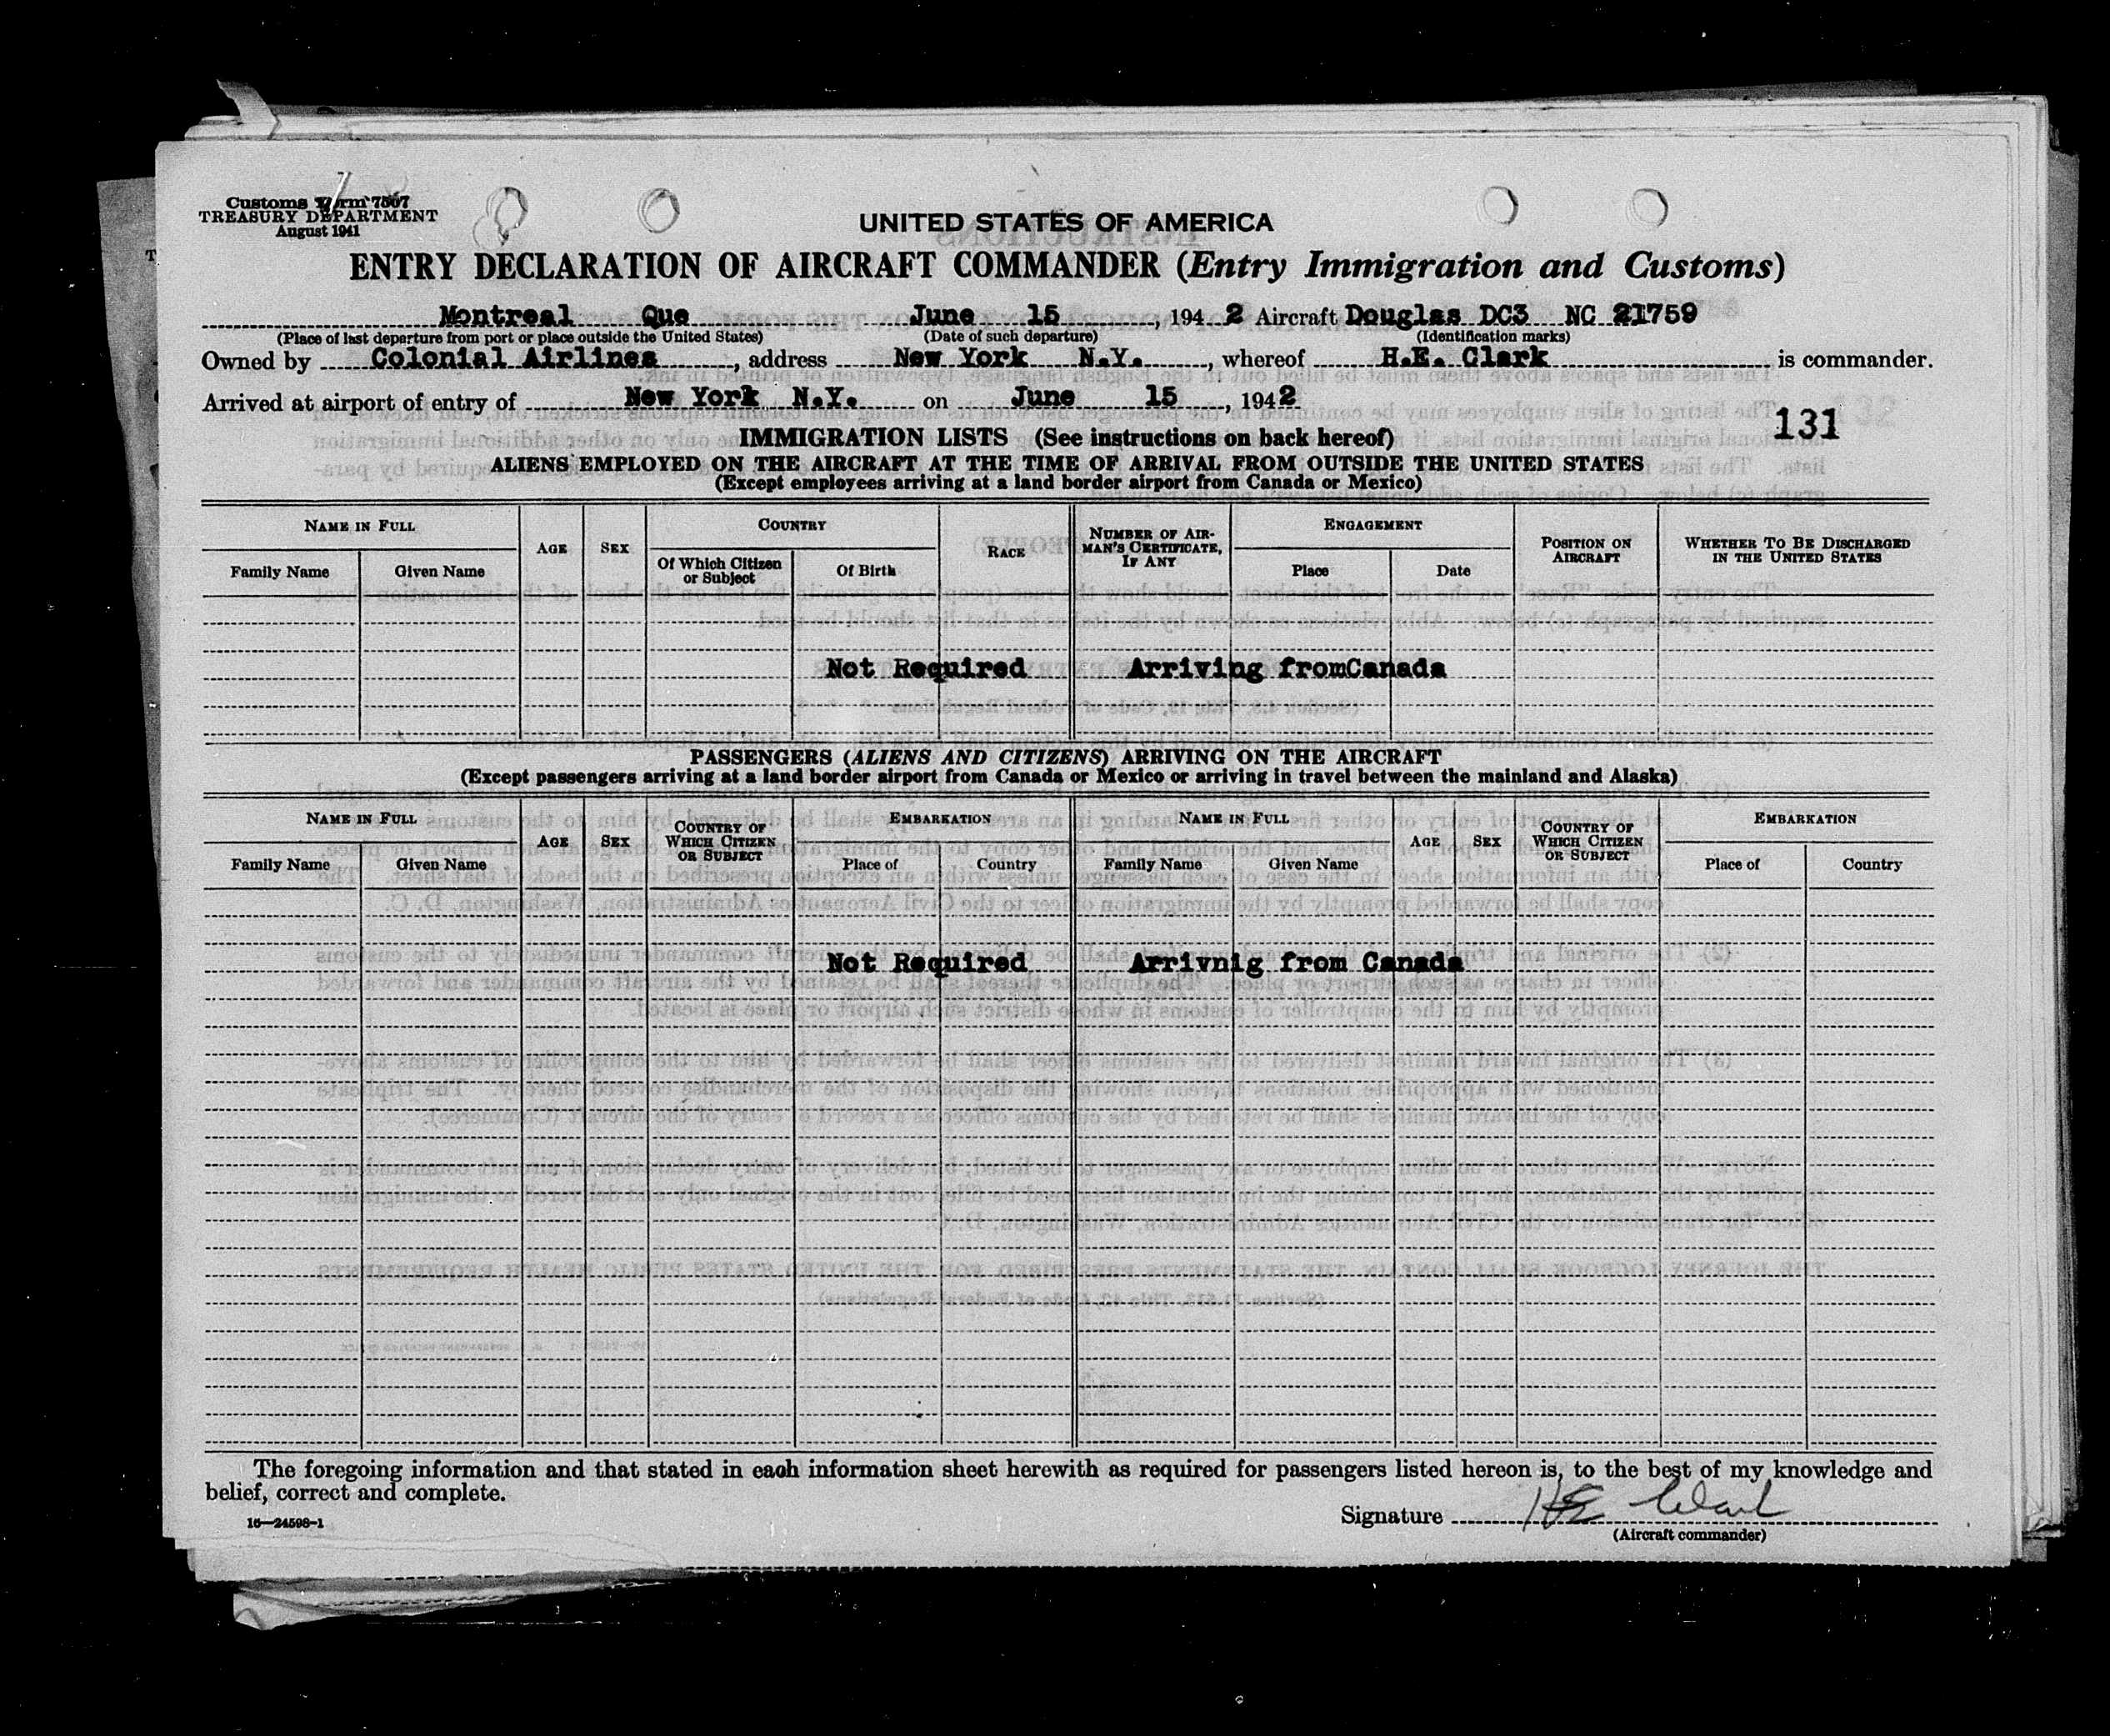 Customs Form 7507
TREASURY DEPARTMENT
August 1941
UNITED STATES OF AMERICA
ENTRY DECLARATION OF AIRCRAFT COMMANDER (Entry Immigration and Customs)
Montreal Que June 15, 1942 Aircraft Douglas DC3 NC 21759
(Place of last departure from port or place outside the United States) (Date of such departure) (Identification marks)
Owned by Colonial Airlines, address New York N.Y., whereof H.E. Clark is commander.
Arrived at airport of entry of New York N.Y. on June 15, 1942
131
IMMIGRATION LISTS (See instructions on back hereof)
ALIENS EMPLOYED ON THE AIRCRAFT AT THE TIME OF ARRIVAL FROM OUTSIDE THE UNITED STATES
(Except employees arriving at a land border airport from Canada or Mexico)
NAME IN FULL AGE SEX COUNTRY RACE NUMBER OF AIRMAN'S CERTIFICATE, IF ANY ENGAGEMENT POSITION ON AIRCRAFT WHETHER TO BE DISCHARGED IN THE UNITED STATES
Family Name Given Name Of Which Citizen or Subject Of Birth Place Date
Not Required Arriving fromCanada
PASSENGERS (ALIENS AND CITIZENS) ARRIVING ON THE AIRCRAFT
(Except passengers arriving at a land border airport from Canada or Mexico or arriving in travel between the mainland and Alaska)
NAME IN FULL AGE SEX COUNTRY OF WHICH CITIZEN OR SUBJECT EMBARKATION NAME IN FULL AGE SEX COUNTRY OF WHICH CITIZEN OR SUBJECT EMBARKATION
Family Name Given Name Place of Country Family Name Given Name Place of Country
Not Required Arrivnig from Canada
The foregoing information and that stated in each information sheet herewith as required for passengers listed hereon is, to the best of my knowledge and
belief, correct and complete.
Signature HE Clark
16—24598-1
(Aircraft commander)